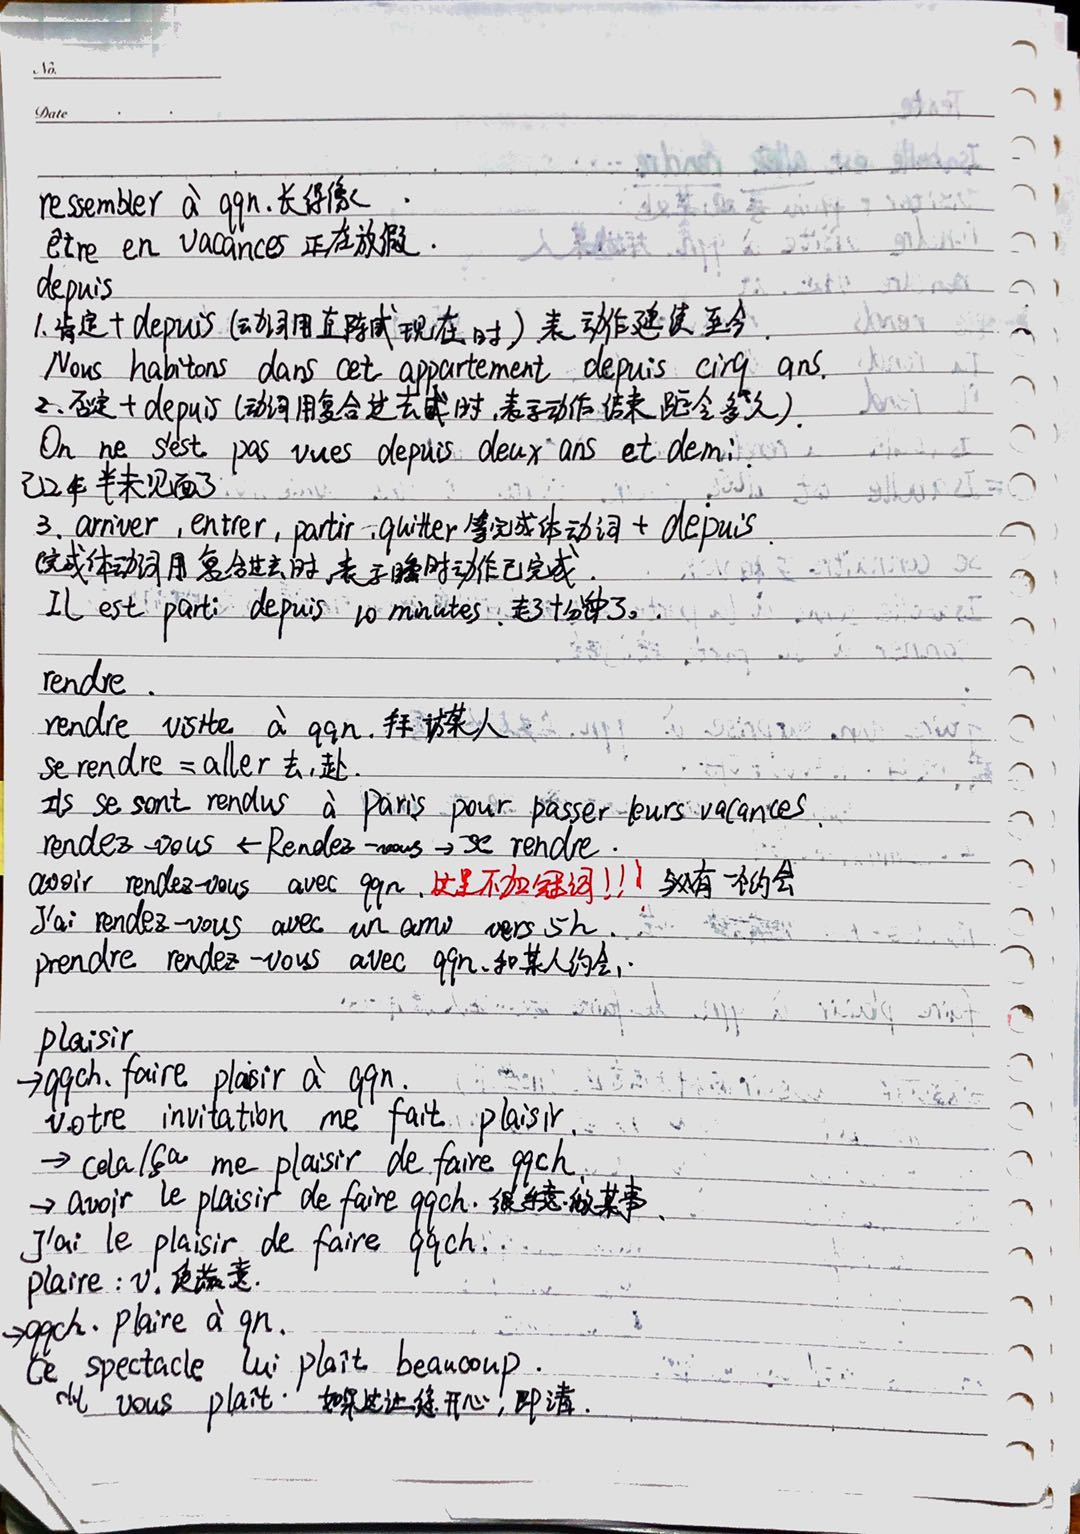 No.
Date
ressembler à qqn. 长得像
être en vacances 正在放假.
depuis
1. 肯定 + depuis (动词用直陈式现在时) 表动作延续至今.
Nous habitons dans cet appartement depuis cinq ans.
2. 否定 + depuis (动词用复合过去式时, 表示动作结束距今多久).
On ne s'est pas vues depuis deux ans et demi.
已2年半未见面了
3. arriver, entrer, partir, quitter 等完成体动词 + depuis
完成体动词用复合过去时, 表示瞬时动作已完成.
Il est parti depuis 10 minutes. 走了十分钟了。
rendre.
rendre visite à qqn. 拜访某人
se rendre = aller 去, 赴.
Ils se sont rendus à Paris pour passer leurs vacances.
rendez-vous ← Rendez-vous → se rendre.
avoir rendez-vous avec qqn. 这里不加冠词!!! 有一个约会
J'ai rendez-vous avec un ami vers 5h.
prendre rendez-vous avec qqn. 和某人约会,
plaisir
→ qqch. faire plaisir à qqn.
votre invitation me fait plaisir.
→ cela/ça me plaisir de faire qqch
→ avoir le plaisir de faire qqch. 很乐意做某事.
J'ai le plaisir de faire qqch.
plaire : v. 使满意.
→ qqch. plaire à qn.
Ce spectacle lui plaît beaucoup.
vous plaît. 如果这让您开心, 即请.